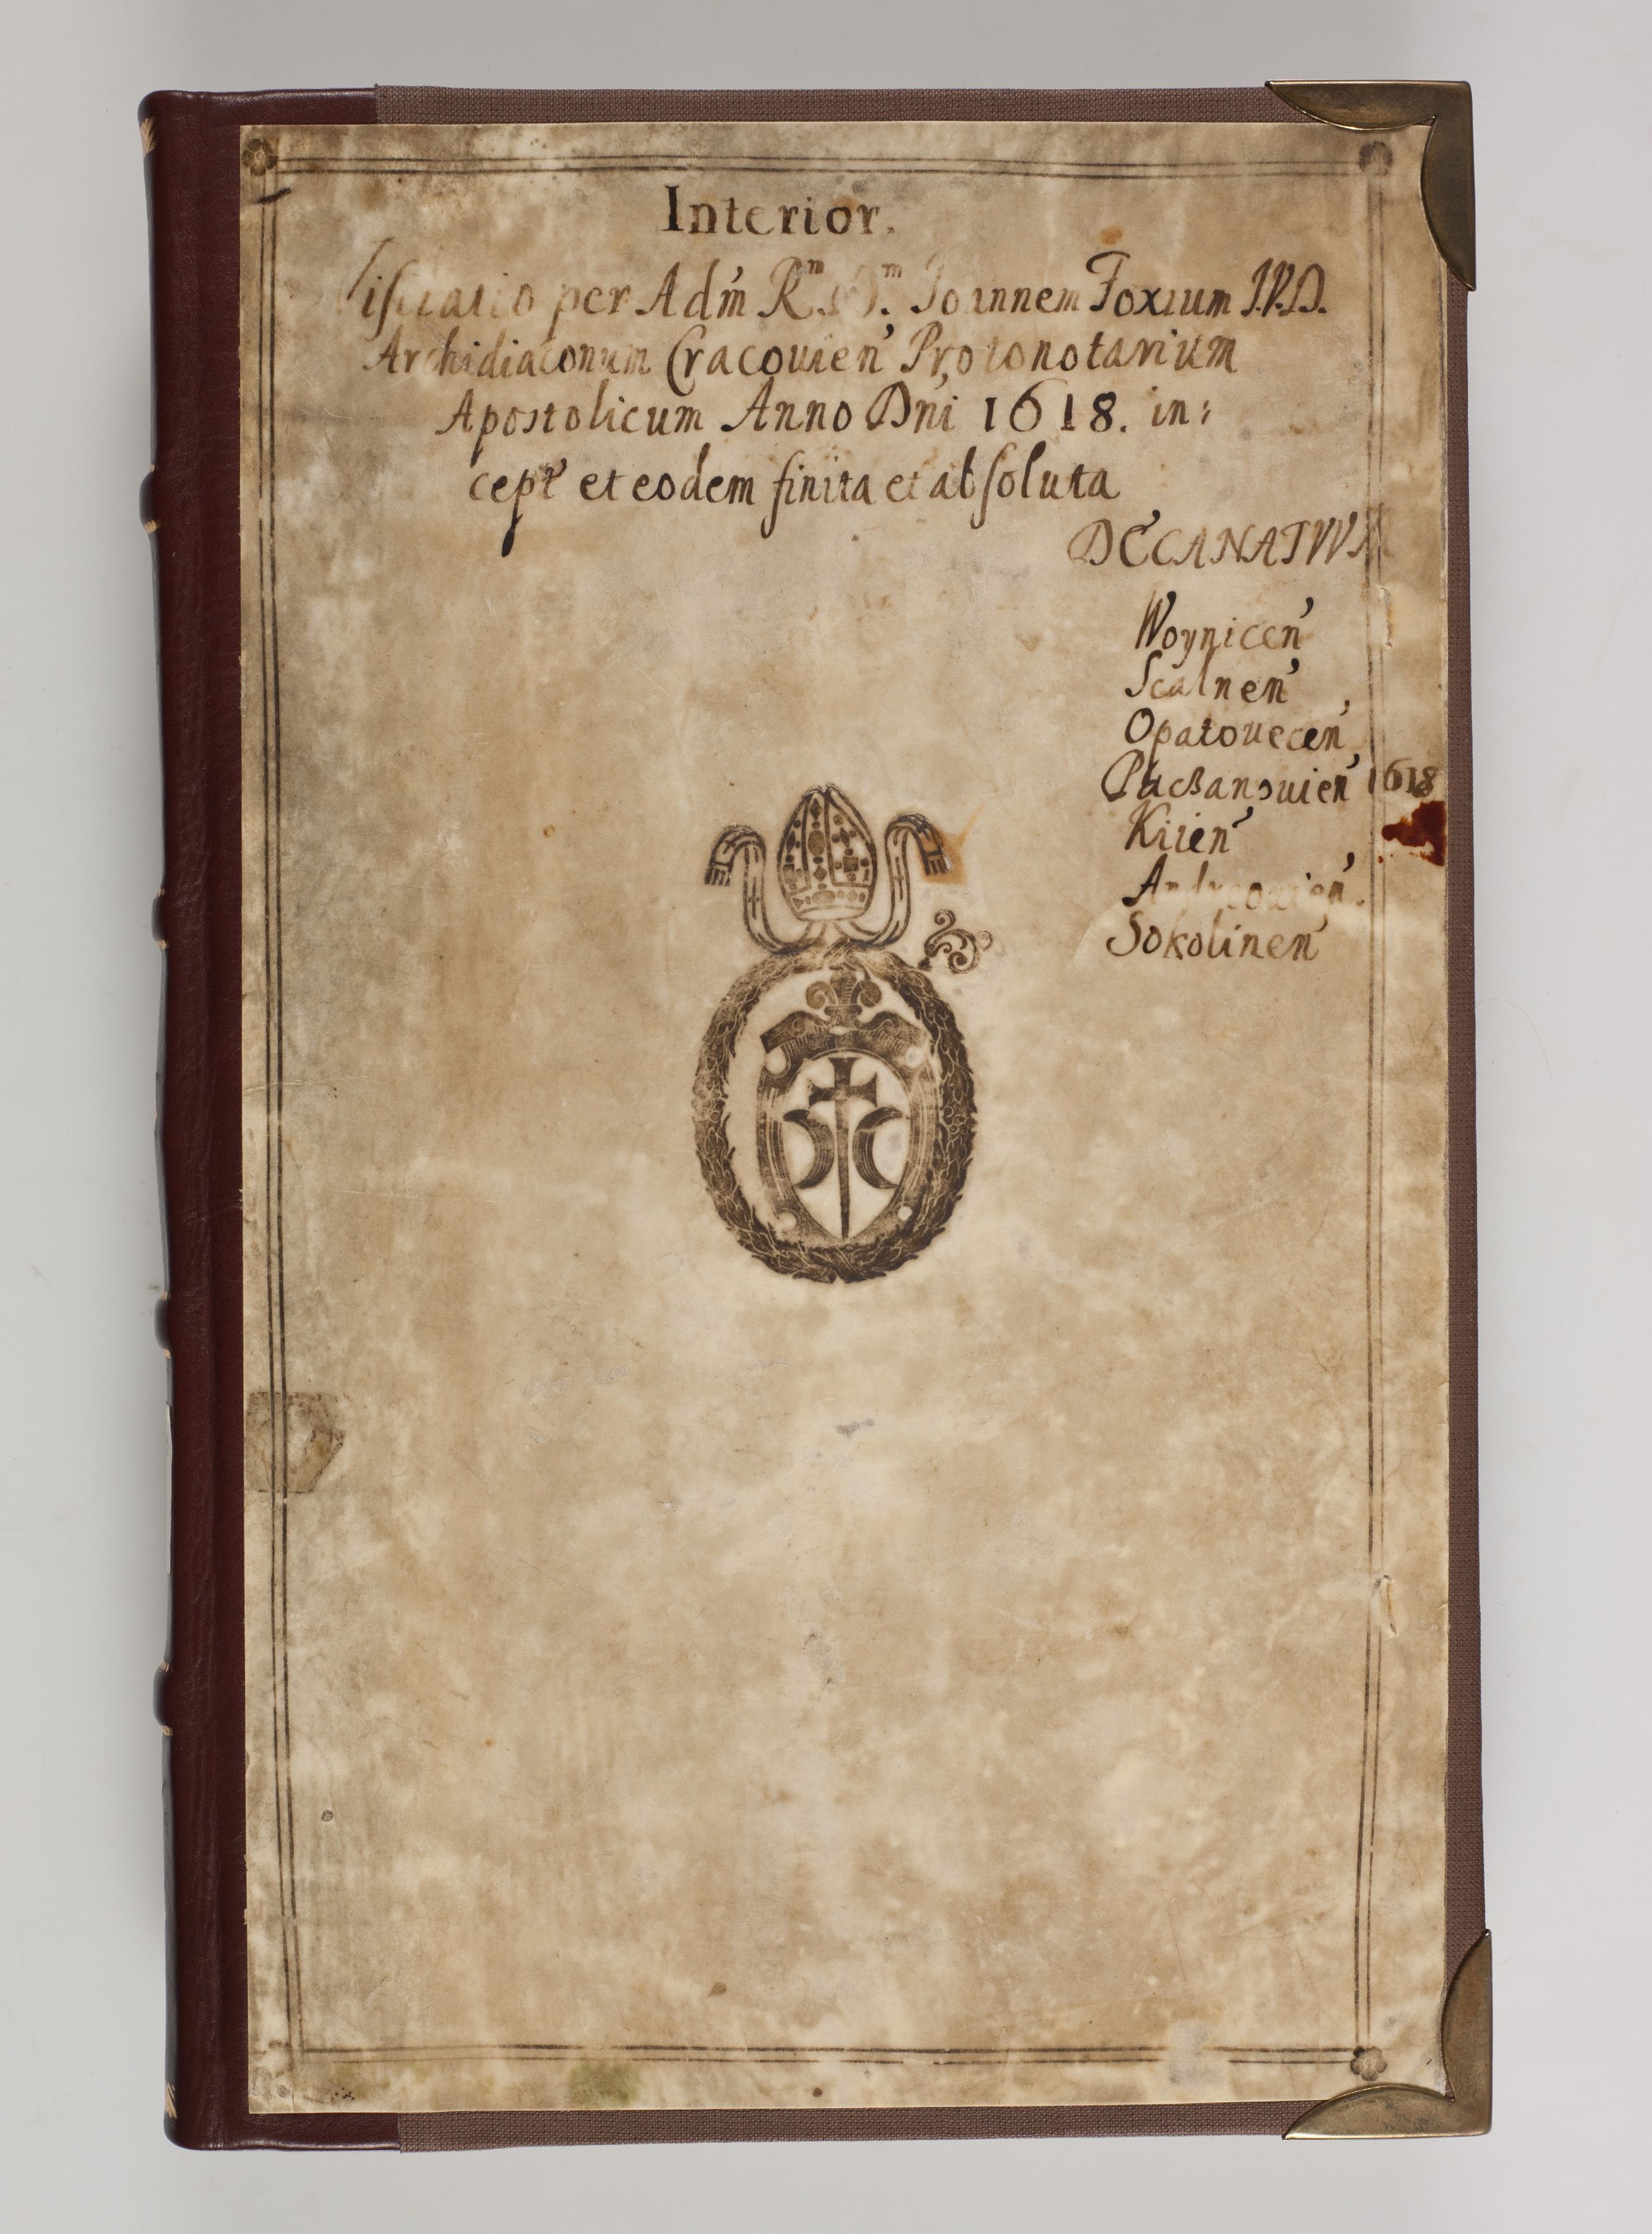 Interior.
per Adm̃ Rm Ioannem Foxium I.V.D.
Archidiaconum Cracouien̉ Protonotarium
Apostolicum Anno Dni 1618. in:
cept̉ et eodem finita et absoluta
DECANATVVM
Woynicen̉
Scalnen̉
Opatouecen̉
Pacżanouien̉ 1618
Kiien̉
Sokolinen̉